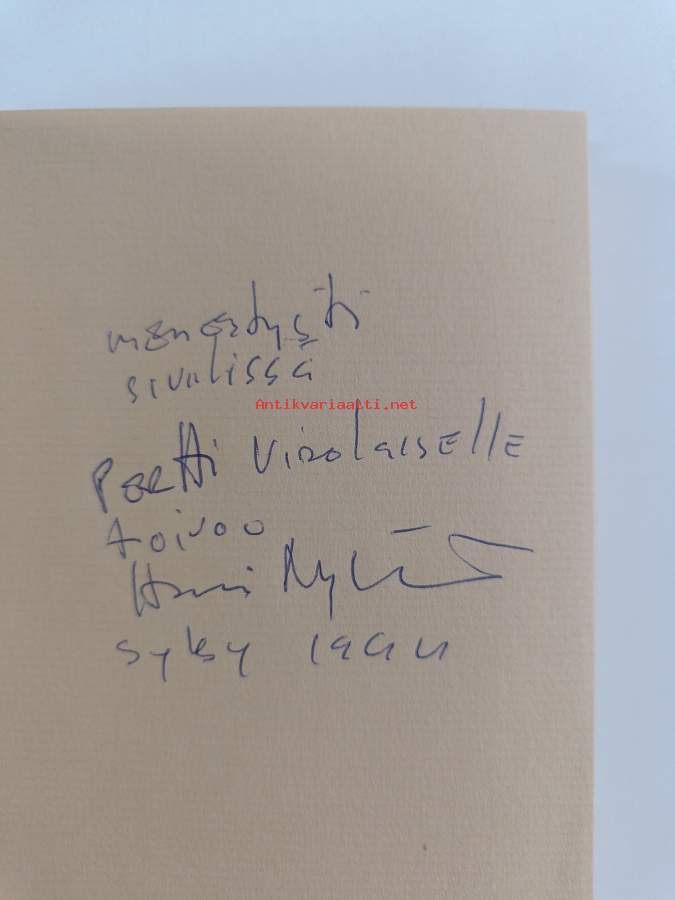 menestystä
siviilissä
Antikvariaatti.net
Pertti Virolaiselle
toivoo
syksy 1994